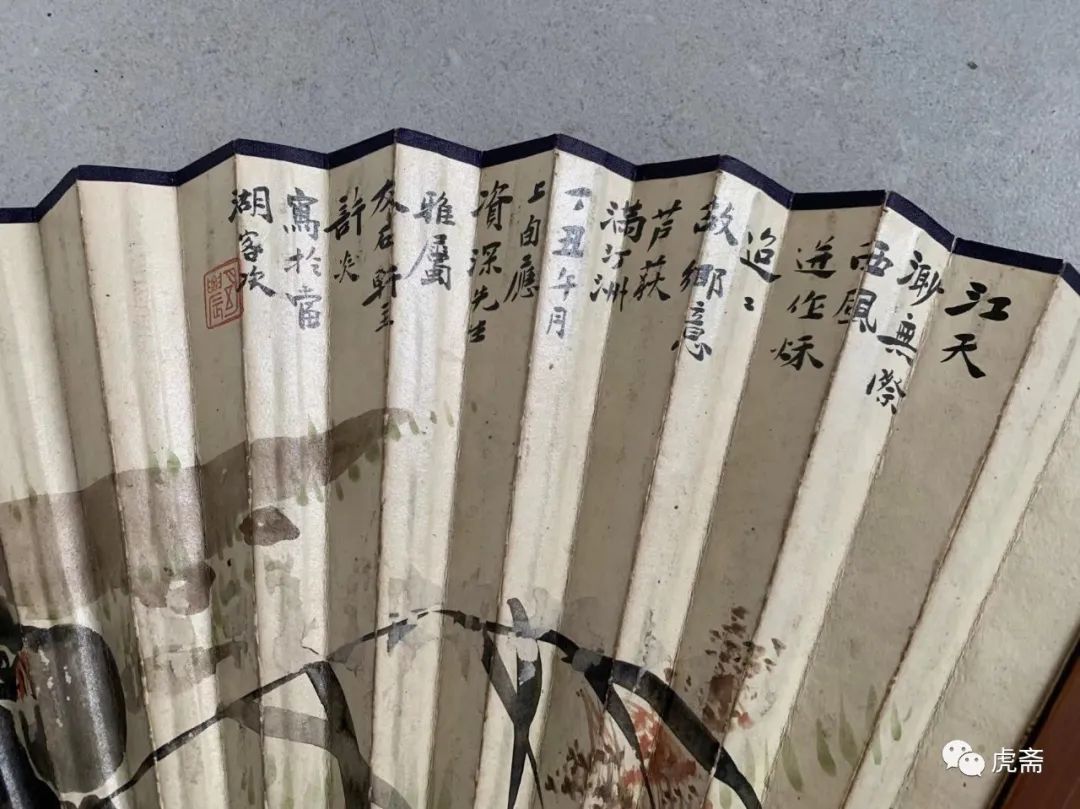 江天
渺無際
西風
迸作秌
迢〻
故鄉意
芦荻
滿汀洲
丁丑午月
上旬應
資深先生
雅屬
友石軒主
許炎
寫於富
湖客次
虎斋